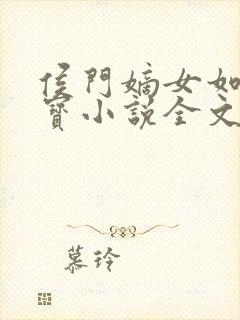 侯門嫡女如
寶小說全文
慕玲